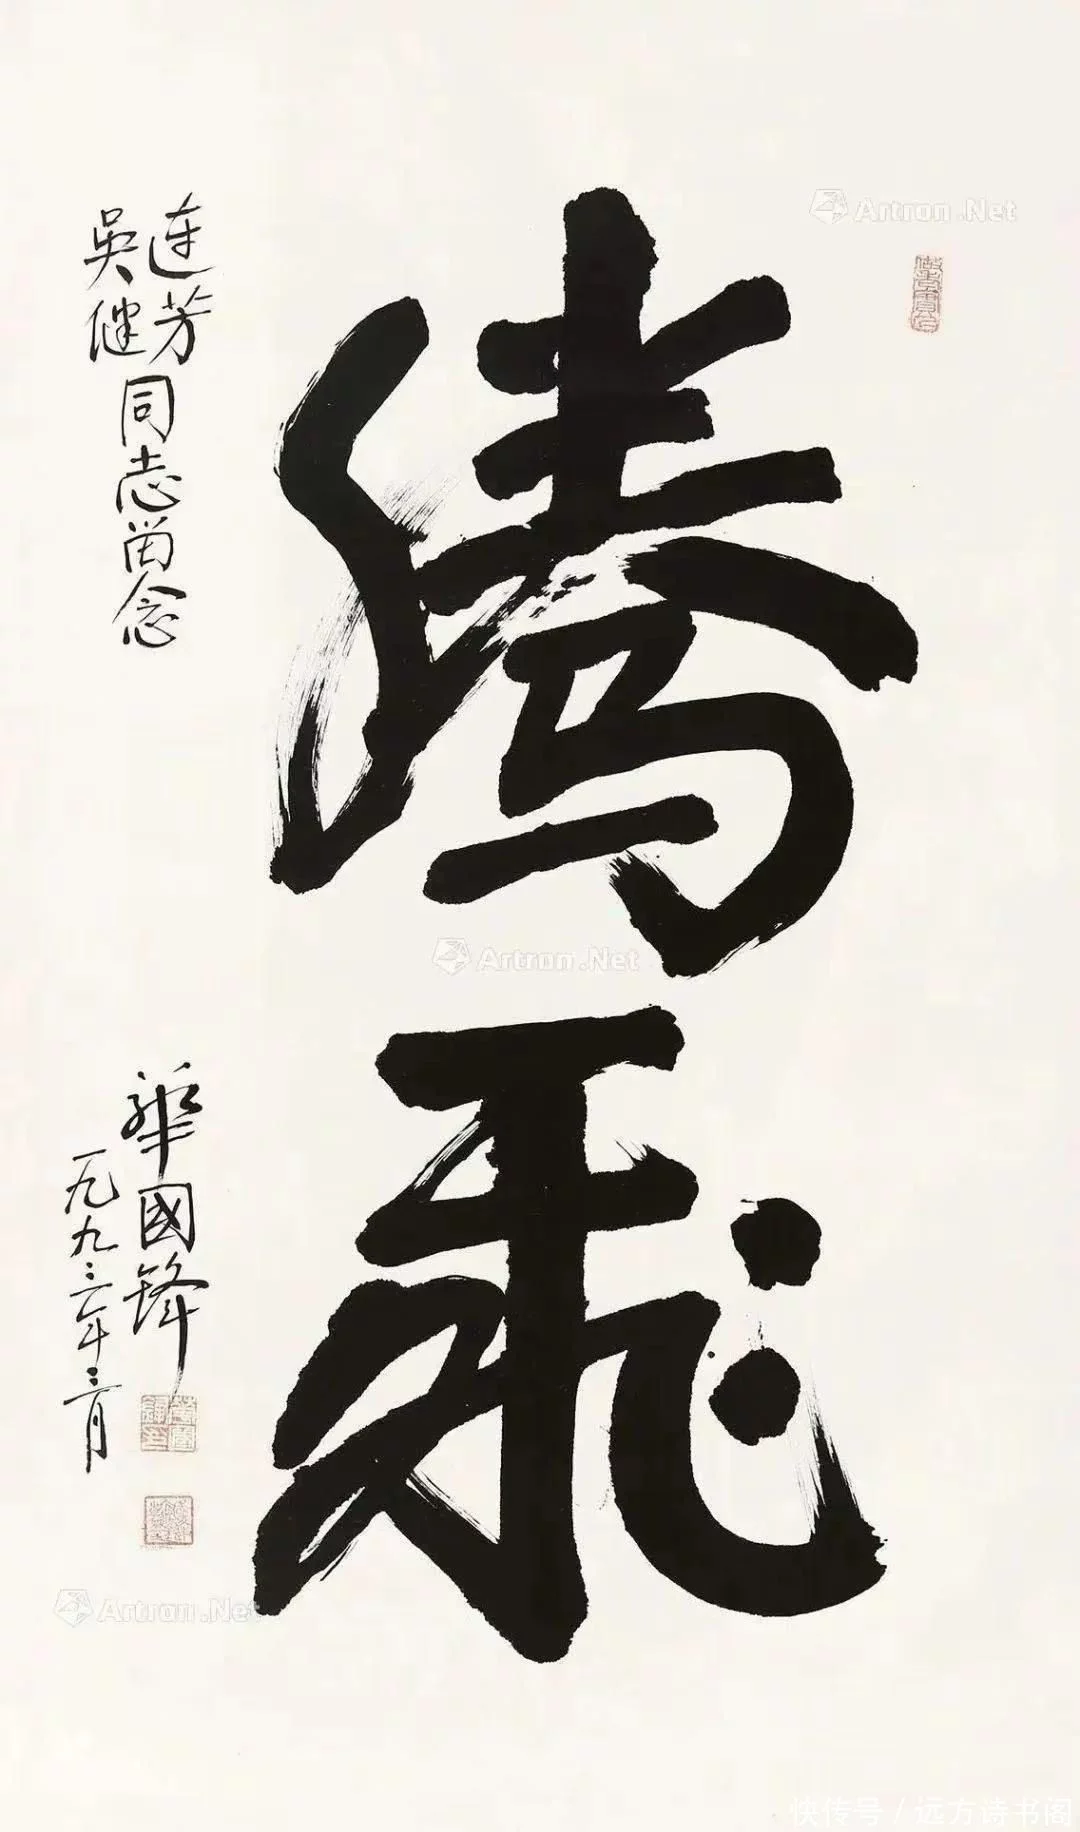 腾飞
连芳
吴健
同志留念
华国锋
一九九三年三月
Artron.Net
Artron.Net
Artron.Net
快传号 / 远方诗书阁